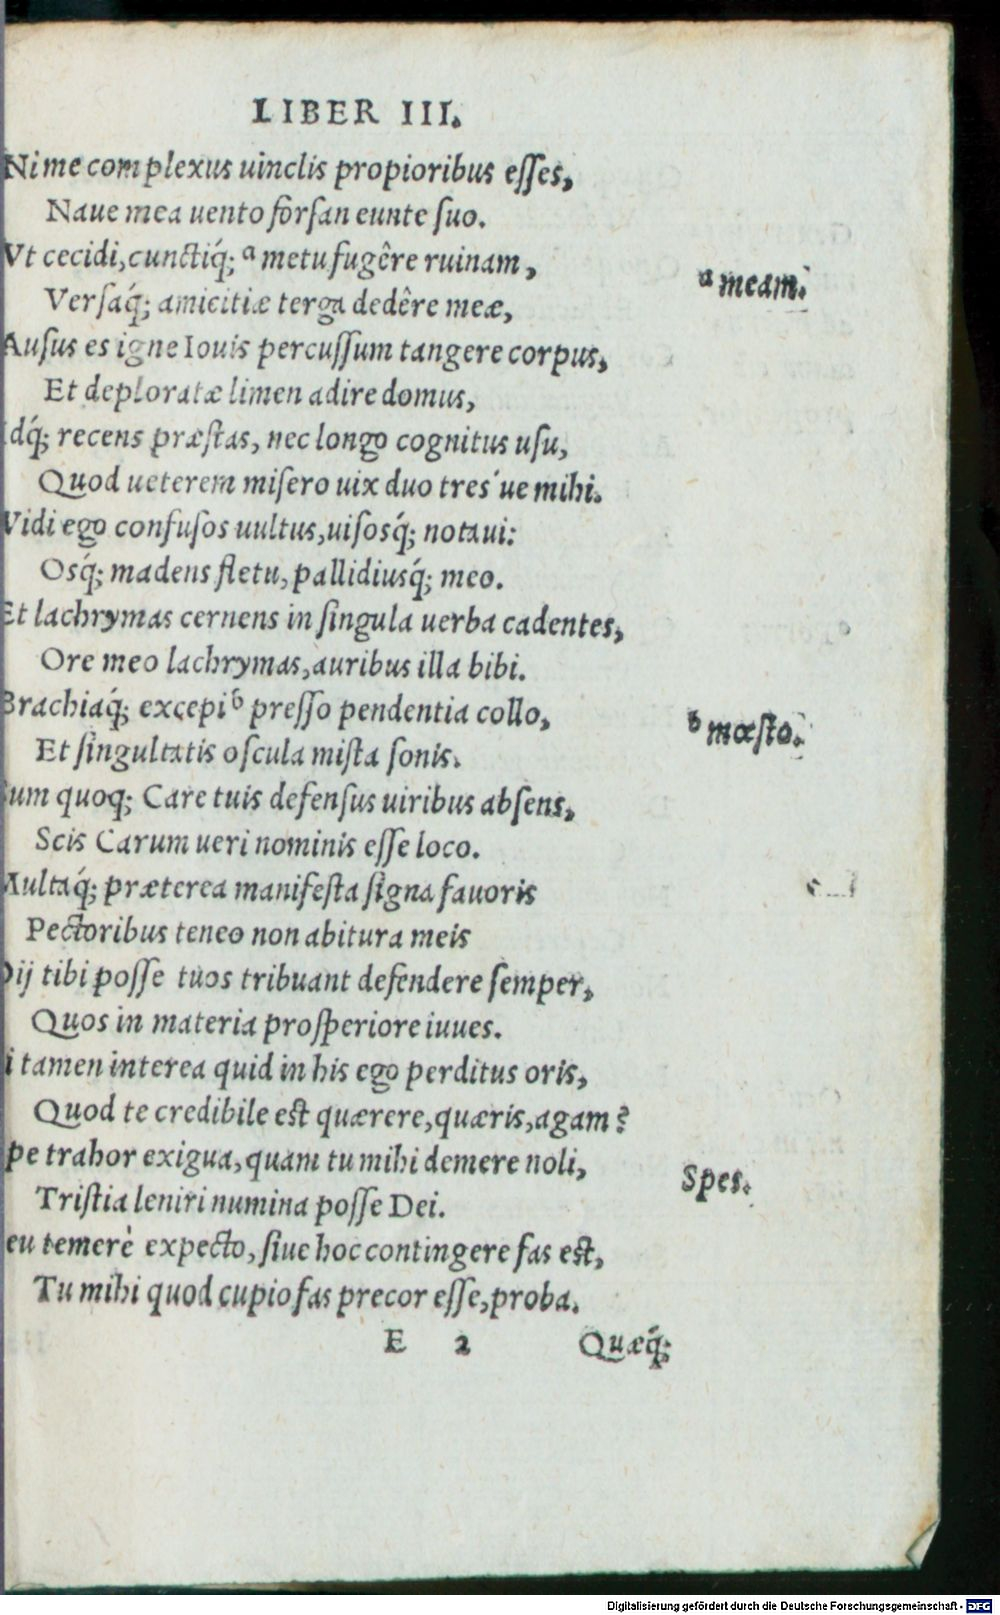 LIBER III.
Ni me complexus uinclis propioribus eſſes,
Naue mea uento forſan eunte ſuo.
Vt cecidi, cunctiq́; ᵃ metu fugêre ruinam,
ᵃ meam.
Verſaq́; amicitiæ terga dedêre meæ,
Auſus es igne Iouis percuſſum tangere corpus,
Et deploratæ limen adire domus,
Idq́; recens præſtas, nec longo cognitus uſu,
Quod ueterem miſero uix duo tres'ue mihi.
Vidi ego confuſos uultus, uiſosq́; notaui:
Osq́; madens fletu, pallidiusq́; meo.
Et lachrymas cernens in ſingula uerba cadentes,
Ore meo lachrymas, auribus illa bibi.
Brachiaq́; excepi ᵇ preſſo pendentia collo,
ᵇ mœſto.
Et ſingultatis oſcula miſta ſonis.
Sum quoq; Care tuis defenſus uiribus abſens,
Scis Carum ueri nominis eſſe loco.
Multaq́; præterea manifeſta ſigna fauoris
Pectoribus teneo non abitura meis
Dij tibi poſſe tuos tribuant defendere ſemper,
Quos in materia proſperiore iuues.
i tamen interea quid in his ego perditus oris,
Quod te credibile eſt quærere, quæris, agam?
pe trahor exigua, quam tu mihi demere noli,
Spes.
Triſtia leniri numina poſſe Dei.
eu temerè expecto, ſiue hoc contingere fas eſt,
Tu mihi quod cupio fas precor eſſe, proba.
E 2 Quæq́;
Digitalisierung gefördert durch die Deutsche Forschungsgemeinschaft - DFG